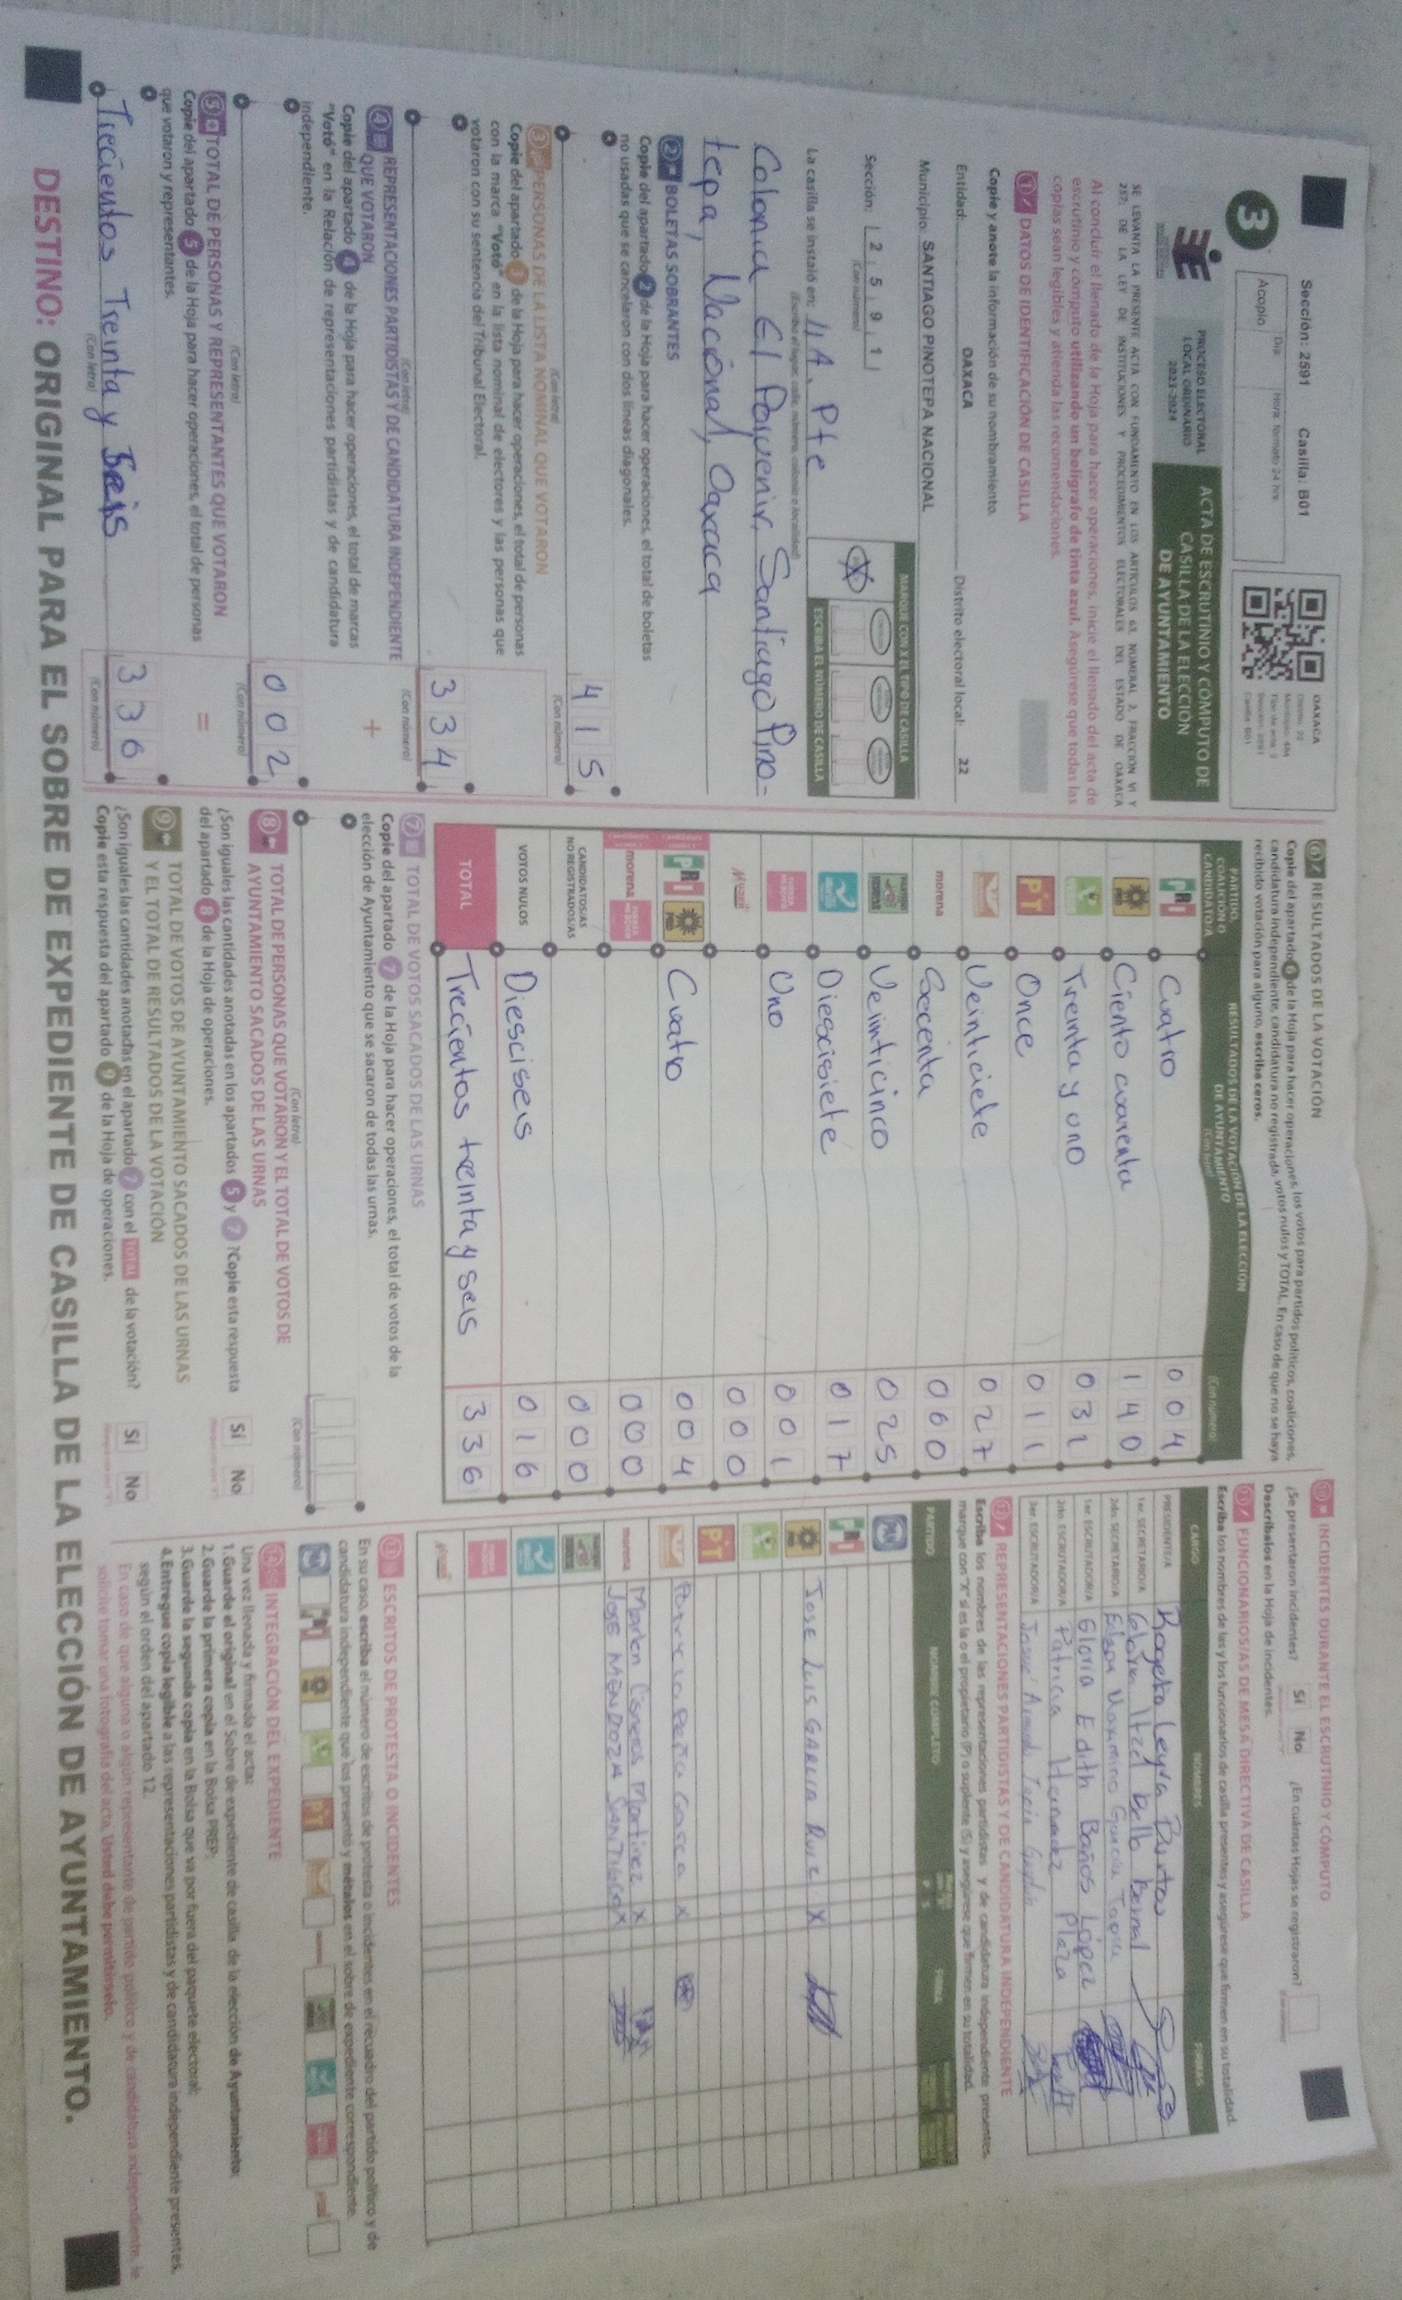 Sección: 2591 Casilla: B01
3
Acopio
Día:
Hora: formato 24 hrs.
OAXACA
PROCESO ELECTORAL
LOCAL ORDINARIO
2023-2024
ACTA DE ESCRUTINIO Y CÓMPUTO DE
CASILLA DE LA ELECCIÓN
DE AYUNTAMIENTO
SE LEVANTA LA PRESENTE ACTA CON FUNDAMENTO EN LOS ARTÍCULOS 63, NUMERAL 2, FRACCIÓN VI Y
257; DE LA LEY DE INSTITUCIONES Y PROCEDIMIENTOS ELECTORALES DEL ESTADO DE OAXACA
Al concluir el llenado de la Hoja para hacer operaciones, inicie el llenado del acta de
escrutinio y cómputo utilizando un bolígrafo de tinta azul. Asegúrese que todas las
copias sean legibles y atienda las recomendaciones.
1 DATOS DE IDENTIFICACIÓN DE CASILLA
Copie y anote la información de su nombramiento.
Entidad: OAXACA Distrito electoral local: 22
Municipio: SANTIAGO PINOTEPA NACIONAL
Sección: 2 5 9 1
(Con número)
MARQUE CON X EL TIPO DE CASILLA
ESCRIBA EL NÚMERO DE CASILLA
La casilla se instaló en: 4A. Pte
Colonia El Porvenir, Santiago Pino-
tepa, Nacional, Oaxaca
2 BOLETAS SOBRANTES
Copie del apartado 2 de la Hoja para hacer operaciones, el total de boletas
no usadas que se cancelaron con dos líneas diagonales.
415
(Con letra) (Con número)
3 PERSONAS DE LA LISTA NOMINAL QUE VOTARON
Copie del apartado 3 de la Hoja para hacer operaciones, el total de personas
con la marca "Votó" en la lista nominal de electores y las personas que
votaron con su sentencia del Tribunal Electoral.
334
(Con letra) (Con número)
4 REPRESENTACIONES PARTIDISTAS Y DE CANDIDATURA INDEPENDIENTE
QUE VOTARON +
Copie del apartado 4 de la Hoja para hacer operaciones, el total de marcas
"Votó" en la Relación de representaciones partidistas y de candidatura
independiente.
002
(Con letra) (Con número)
5 TOTAL DE PERSONAS Y REPRESENTANTES QUE VOTARON =
Copie del apartado 5 de la Hoja para hacer operaciones, el total de personas
que votaron y representantes.
Trecientos Treinta y Seis 336
(Con letra) (Con número)
6 RESULTADOS DE LA VOTACIÓN
Copie del apartado 6 de la Hoja para hacer operaciones, los votos para partidos políticos, coaliciones,
candidatura independiente, candidatura no registrada, votos nulos y TOTAL. En caso de que no se haya
recibido votación para alguno, escriba ceros.
PARTIDO, COALICIÓN O CANDIDATO/A
RESULTADOS DE LA VOTACIÓN DE LA ELECCIÓN
DE AYUNTAMIENTO
(Con letra) (Con número)
PRI Cuatro 004
PRD Ciento cuarenta 140
Treinta y uno 031
PT Once 011
Veinticiete 027
morena Secenta 060
Veinticinco 025
Diescisiete 017
Uno 001
000
PRI PRD Cuatro 004
morena 000
CANDIDATOS/AS
NO REGISTRADOS/AS 000
VOTOS NULOS Diesciseis 016
TOTAL Trecientos treinta y seis 336
7 TOTAL DE VOTOS SACADOS DE LAS URNAS
Copie del apartado 7 de la Hoja para hacer operaciones, el total de votos de la
elección de Ayuntamiento que se sacaron de todas las urnas.
(Con letra) (Con número)
8 TOTAL DE PERSONAS QUE VOTARON Y EL TOTAL DE VOTOS DE
AYUNTAMIENTO SACADOS DE LAS URNAS
¿Son iguales las cantidades anotadas en los apartados 5 y 7 ?Copie esta respuesta
del apartado 8 de la Hoja de operaciones. Sí No
9 TOTAL DE VOTOS DE AYUNTAMIENTO SACADOS DE LAS URNAS
Y EL TOTAL DE RESULTADOS DE LA VOTACIÓN
¿Son iguales las cantidades anotadas en el apartado 7 con el TOTAL de la votación? Sí No
Copie esta respuesta del apartado 9 de la Hoja de operaciones.
10 INCIDENTES DURANTE EL ESCRUTINIO Y CÓMPUTO
¿Se presentaron incidentes? Sí No ¿En cuántas Hojas se registraron?
Descríbalos en la Hoja de incidentes.
11 FUNCIONARIOS/AS DE MESA DIRECTIVA DE CASILLA
Escriba los nombres de las y los funcionarios de casilla presentes y asegúrese que firmen en su totalidad.
CARGO NOMBRES FIRMAS
PRESIDENTE/A Leyva
1er. SECRETARIO/A Itzel Bello Bernal
2do. SECRETARIO/A
1er. ESCRUTADOR/A Gloria Edith Baños López
2do. ESCRUTADOR/A Patricia Hernandez Plaza
3er. ESCRUTADOR/A
12 REPRESENTACIONES PARTIDISTAS Y DE CANDIDATURA INDEPENDIENTE
Escriba los nombres de las representaciones partidistas y de candidatura independiente presentes,
marque con "X" si es la o el propietario (P) o suplente (S) y asegúrese que firmen en su totalidad.
PARTIDO NOMBRE COMPLETO P S FIRMA
PAN
PRI
PRD JOSE LUIS GARCIA RUIZ X
PT
X
morena Marlen Cisneros Martinez X
JOSE MENDOZA SANTIAGO X
13 ESCRITOS DE PROTESTA O INCIDENTES
En su caso, escriba el número de escritos de protesta o incidentes en el recuadro del partido político y de
candidatura independiente que los presentó y métalos en el sobre de expediente correspondiente.
14 INTEGRACIÓN DEL EXPEDIENTE
Una vez llenada y firmada el acta:
1. Guarde el original en el Sobre de expediente de casilla de la elección de Ayuntamiento;
2. Guarde la primera copia en la Bolsa PREP;
3. Guarde la segunda copia en la Bolsa que va por fuera del paquete electoral;
4. Entregue copia legible a las representaciones partidistas y de candidatura independiente presentes,
según el orden del apartado 12.
En caso de que alguna o algún representante de partido político y de candidatura independiente, le
solicite tomar una fotografía del acta, Usted debe permitírselo.
DESTINO: ORIGINAL PARA EL SOBRE DE EXPEDIENTE DE CASILLA DE LA ELECCIÓN DE AYUNTAMIENTO.